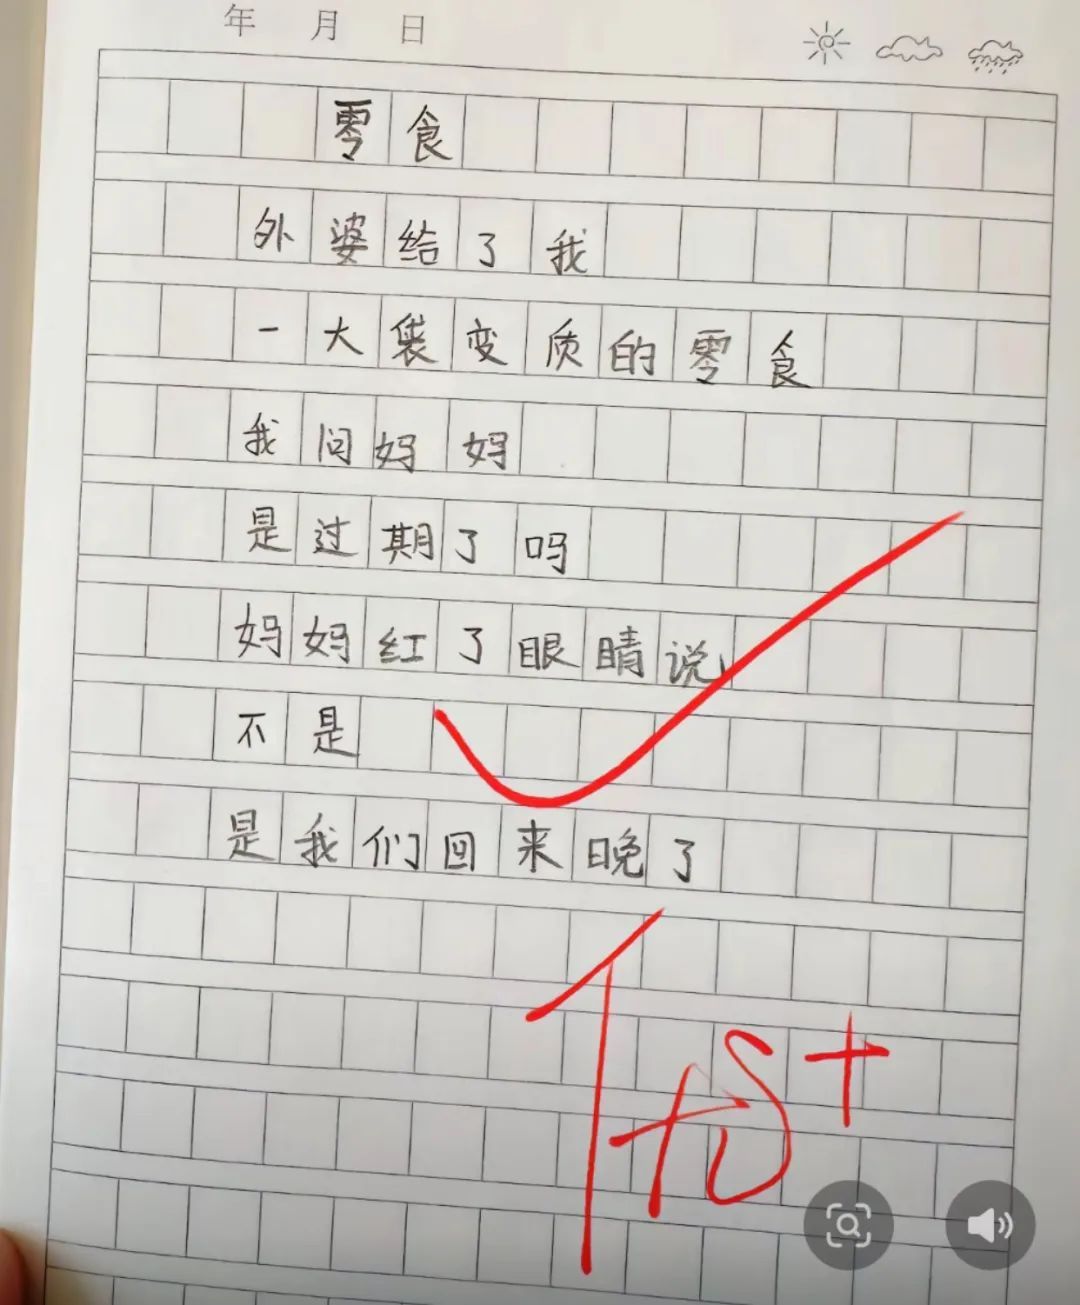 年 月 日
零食
外婆给了我
一大袋变质的零食
我问妈妈
是过期了吗
妈妈红了眼睛说
不是
是我们回来晚了
优+